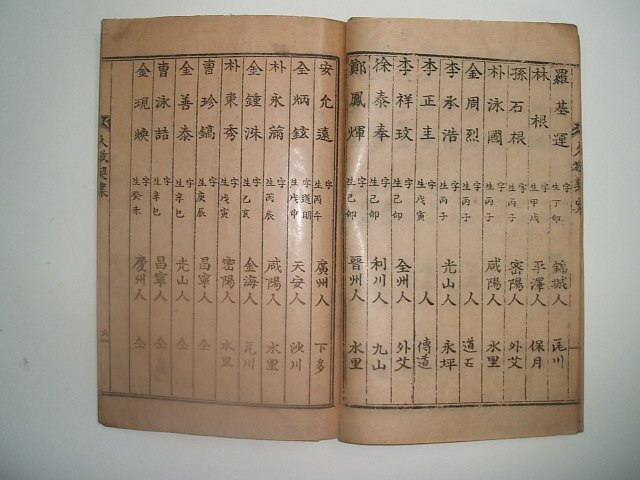 羅基運 字 生丁卯 錦城人 瓦川
林根 字 生甲戌 平澤人 保月
孫石根 字 生丙子 密陽人 外艾
朴泳國 字 生丙子 咸陽人 水里
金周烈 字 生丙子 人 道石
李承浩 字 生丙子 光山人 永坪
李正圭 字 生戊寅 人 傳道
李祥玟 字 生己卯 全州人 外艾
徐泰奉 字 生己卯 利川人 九山
鄭鳳煇 字 生己卯 晉州人 水里
安允遠 字 生丙午 廣州人 下多
全炳鉉 字道明 生戊申 天安人 沙川
朴永滿 字 生丙辰 咸陽人 水里
金鍾洙 字 生乙亥 金海人 瓦川
朴東秀 字 生戊寅 密陽人 水里
曹珍鎬 字 生庚辰 昌寧人 仝
金善泰 字 生辛巳 光山人 仝
曹泳喆 字 生辛巳 昌寧人 仝
金現煥 字 生癸未 慶州人 仝